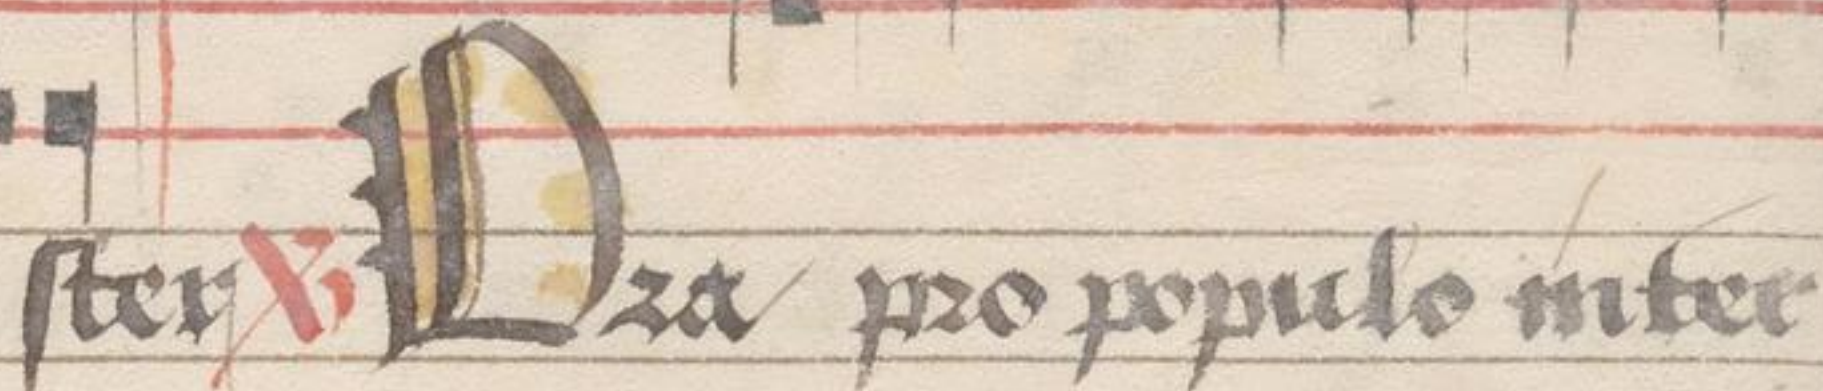 ster ℣ Ora pro populo inter